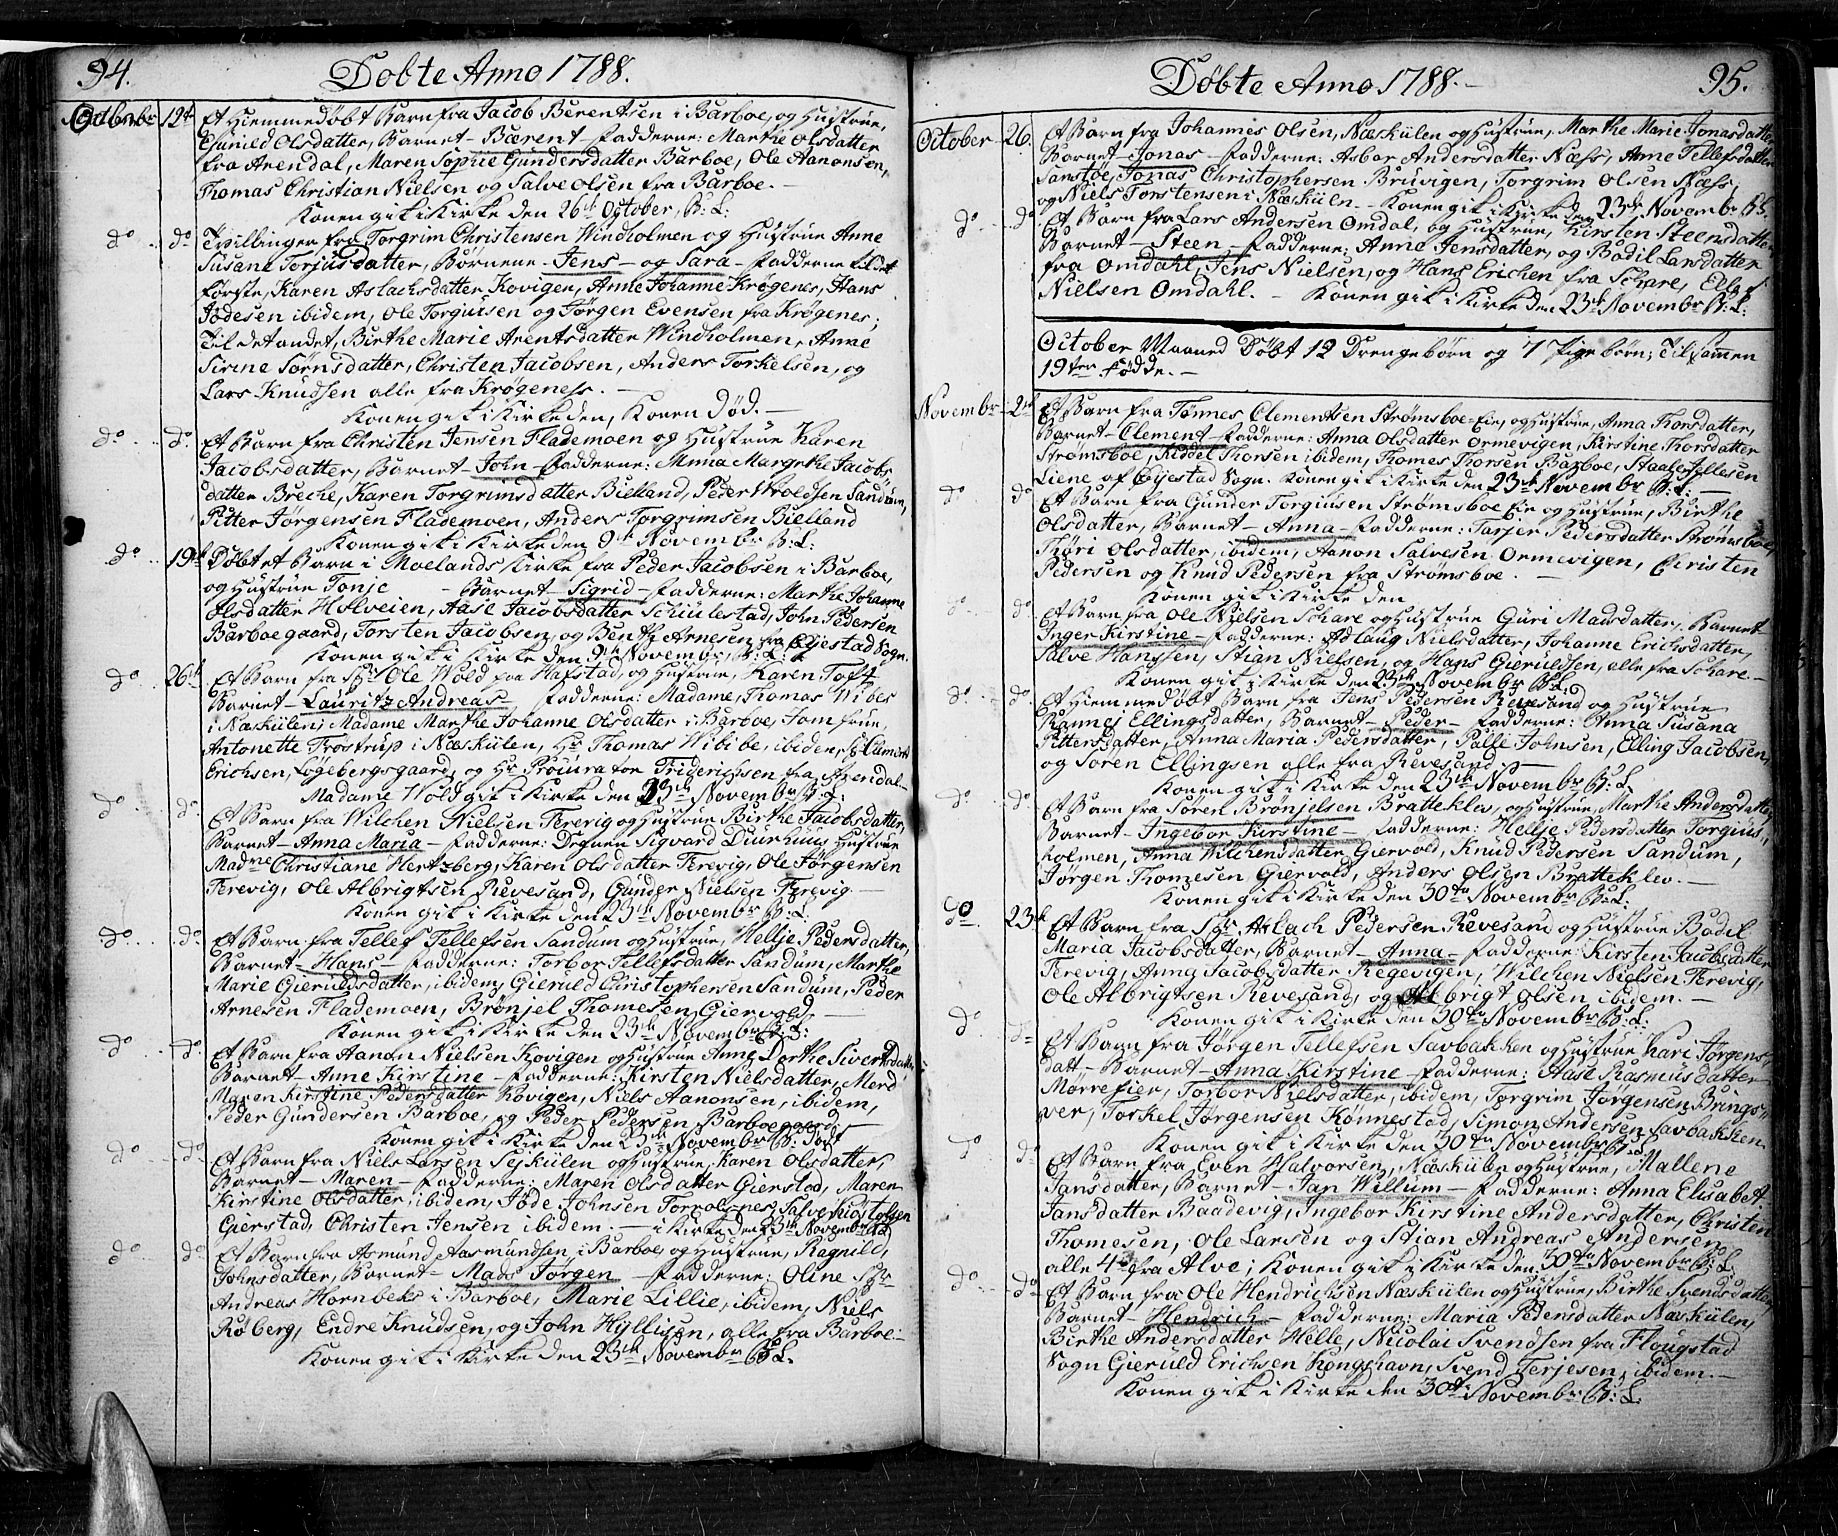 94. Døbte Anno 1788.
October 12te Et Hiemmedøbt Barn fra Jacob Berentsen i Barboe, og Hustrue,
Gunild Olsdatter, Barnet - Bærent - Fadderne: Marthe Olsdatter
fra Arendal, Maren Sophie Gundersdatter Barboe, Ole Aanonsen,
Thomas Christian Nielsen og Salve Olsen fra Barboe. -
Konen gik i Kirke den 26te October, B: L:
do do Tvillinger fra Torgrim Christensen Windholmen og Hustrue Anne
Susane Torjusdatter, Børnene - Jens - og Sara - Fadderne til det
første, Karen Aslachsdatter Kovigen, Anne Johanne Krøgenes, Hans
Jødesen ibidem, Ole Torguisen og Jørgen Evensen fra Krøgenes;
Til det andet, Birthe Marie Arentsdatter Windholmen, Anne
Sirine Sørnsdatter, Christen Jacobsen, Anders Torkelsen, og
Lars Knudsen alle fra Krøgeness. -
Konen gik i Kirke den, Konen Død. -
do do Et Barn fra Christen Jensen Flademoen og Hustrue Karen
Jacobsdatter, Barnet - John - Fadderne: Anna Margrethe Jacobs
datter Breche, Karen Torgrimsdatter Bielland, Peder Sandum,
Pitter Jørgensen Flademoen, Anders Torgrimsen Bielland
Konen gik i Kirke den 9de Novembr B: L:
do 19de Døbt et Barn i Moelands Kirke fra Peder Jacobsen i Barboe,
og Hustrue Tonje - Barnet - Sigrid - Fadderne: Marthe Johanne
Olsdatter Holveien, Aase Jacobsdatter Schiulestad, John Pedersen
Barboegaard, Torsten Jacobsen, og Benth Arnesen fra Øyestad Sogn.
Konen gik i Kirke den 9de Novembr, B: L:
do 26de Et Barn fra Sr Ole Wold paa Hafstad, og Hustrue, Karen Toft
Barnet - Lauritz Andreas - Fadderne: Madame, Thomas Wibes
i Næskilen, Madame Marthe Johanne Olsdatter i Barboe, Jomfrue,
Antonette Trøstrup i Næskilen, Hr Thomas Wibe, ibidem, Sr Clement
Erichsen, Løgebergsgaard, og Hr Procurator Friderichsen fra Arendal.
Madame Wold gik i Kirke den 23de Novembr B: L:
do do Et Barn fra Wilchen Nielsen Terevig og Hustrue Birthe Jacobsdatter,
Barnet - Anna Maria - Fadderne: Degnen Sigvard Duurhuus Hustrue
Madme Christiane Hertzberg, Karen Olsdatter Terevig, Ole Jørgensen
Terevig, Ole Albrigtsen Revesand, Gunder Nielsen Terevig -
Konen gik i Kirke den 23de Novembr B: L:
do do Et Barn fra Tellef Tellefsen Sandum og Hustrue, Hellje Pedersdatter,
Barnet - Hans - Fadderne: Torbor Tellefsdatter Sandum, Marthe
Marie Gieruldsdatter, ibidem, Gieruld Christophersen Sandum, Peder
Arnesen Flademoen, Brønjel Thomesen, Giervold, -
Konen gik i Kirke den 23de Novembr B: L:
do do Et Barn fra Aanon Nielsen Kovigen og Hustrue Anne Dorthe Sivertsdatter
Barnet - Anne Kirstine - Fadderne: Kirsten Nielsdatter, Merd
Maren Kirstine Pedersdatter Kovigen, Niels Aanonsen, ibidem,
Peder Gundersen Barboe, og Peder Pedersen Barboegaard,
Konen gik i Kirke den 23de Novembr B:
do do Et Barn fra Niels Larsen Seskilen og Hustrue, Karen Olsdatter,
Barnet - Maren - Fadderne: Maren Olsdatter Gierstad, Maren
Kirstine Olsdatter, ibidem, Jøde Johnsen Torvolsnes, Salve
Gierstad, Christen Jensen ibidem. - i Kirke den 23de Novembr
do do Et Barn fra Asmund Aasmundsen i Barboe, og Hustrue, Ragnild,
Johnsdatter, Barnet - Mads Jørgen - Fadderne: Oline Sr
Andreas Hornbeks i Barboe, Marie Lillie, ibidem, Niels
Røberg, Endre Knudsen, og John Hyllisen, alle fra Barboe. -
Konen gik i Kirke den 23de Novembr B: L.
Døbte Anno 1788. - 95.
October 26. Et Barn fra Johannes Olsen, Næskilen og Hustrue, Marthe Marie Jonasdatter
Barnet - Jonas - Fadderne: Asbor Andersdatter Næss, Anne Tellefsdatter
Sanstøe, Jonas Christophersen Bruvigen, Torgrim Olsen Næss,
og Niels Torstensen i Næskilen. - Konen gik i Kirke den 23de Novembr B: L.
do do Et Barn fra Lars Andersen Omdal, og Hustrue, Kirsten Steensdatter
Barnet - Steen - Fadderne: Anne Jensdatter, og Bodil Larsdatter
fra Omdahl, Jens Nielsen, og Hans Erichen fra Schare, Ellef
Nielsen Omdahl. - Konen gik i Kirke den 23de Novembr B: L:
October Maaned Døbt 12 Drengebørn og 7 Pigebørn, Tilsammen
19ten Fødde. -
Novembr 2de Et Barn fra Tønnes Clementsen Strømsboe-Eie, og Hustrue, Anna Thorsdatter,
Barnet - Clement - Fadderne: Anna Olsdatter Ormevigen, Kirstine Thorsdatter
Strømsboe, Thorsen ibidem, Thomes Thorsen Barboe, Staale
Liene af Øyestad Sogn. Konen gik i Kirke den 23de Novembr B: L: -
do do Et Barn fra Gunder Torgiusen Strømsboe Eie og Hustrue, Birthe
Olsdatter, Barnet - Anna - Fadderne: Tarjer Pedersdatter Strømsboe,
Thøri Olsdatter, ibidem, Aanon Salvesen Ormevigen, Christen
Pedersen og Knud Pedersen fra Strømsboe. -
Konen gik i Kirke den
do do Et Barn fra Ole Nielsen Schare og Hustrue Guri Madsdatter, Barnet
Inger Kirstine - Fadderne: Adlaug Nielsdatter, Johanne Erichsdatter,
Salve Hanssen, Stian Nielsen, og Hans Gieruldsen, alle fra Schare. -
Konen gik i Kirke den 23de Novembr B: L.
do do Et Hiemmedøbt Barn fra Jens Pedersen Revesand og Hustrue
Rannes Ellingsdatter, Barnet - Peder - Fadderne: Anna Susana
Pittersdatter, Anna Maria Pedersdatter, Palle Johnsen, Elling Jacobsen,
og Søren Ellingsen alle fra Revesand. -
Konen gik i Kirke den 23de Novembr B: L.
do do Et Barn fra Søren Brønjelsen Bratteklev, og Hustrue, Marthe Andersdatter
Barnet - Ingebor Kirstine - Fadderne: Hellje Pedersdatter Torgius,
holmen, Anna Wilchensdatter Giervold, Knud Pedersen Sandum,
Jørgen Thomesen Giervold, Anders Olsen Bratteklev. -
Konen gik i Kirke den 30te Novembr B: L.
do 23de Et Barn fra Sr Aslach Pedersen Revesand og Hustrue Bodil
Maria Jacobsdatter, Barnet - Anna - Fadderne: Kirsten Jacobsdatter
Terevig, Anna Jacobsdatter Regevigen, Wilchen Nielsen Terevig,
Ole Albrigtsen Revesand, og Albrigt Olsen ibidem. -
Konen gik i Kirke den 30te Novembr B: L:
do do Et Barn fra Jørgen Tellefsen Savbakken og Hustrue Kari Jørgens,
datt, - Barnet - Anna Kirstine - Fadderne: Aase Rasmusdatter
Morrefier, Torbor Nielsdatter, ibidem, Torgrim Jorgensen Brings,
ver, Torkel Jørgensen Kønnestad, Simon Andersen Savbakken
Konen gik i Kirke den 30te Novembr B: L.
do do Et Barn fra Even Halvorsen, Næskilen og Hustrue, Mallene
Jansdatter, Barnet - Jan Willum - Fadderne: Anna Elisabet
Jansdatter Baadevig, Ingebor Kirstine Andersdatter, Christen
Thomesen, Ole Larsen og Stian Andreas Andersen
alle 4 fra Alve; Konen gik i Kirke den 30te Novembr B: L.
do do Et Barn fra Ole Hendrichsen Næskilen og Hustrue, Birthe Svendsdatter,
Barnet - Hendrich - Fadderne: Maria Pedersdatter Næskilen,
Birthe Andersdatter Helle, Nicolai Svendsen fra Flougstad
Sogn Gieruld Erichsen Kongshavn, Svend Terjesen, ibidem. -
Konen gik i Kirke den 30te Novembr B: L.